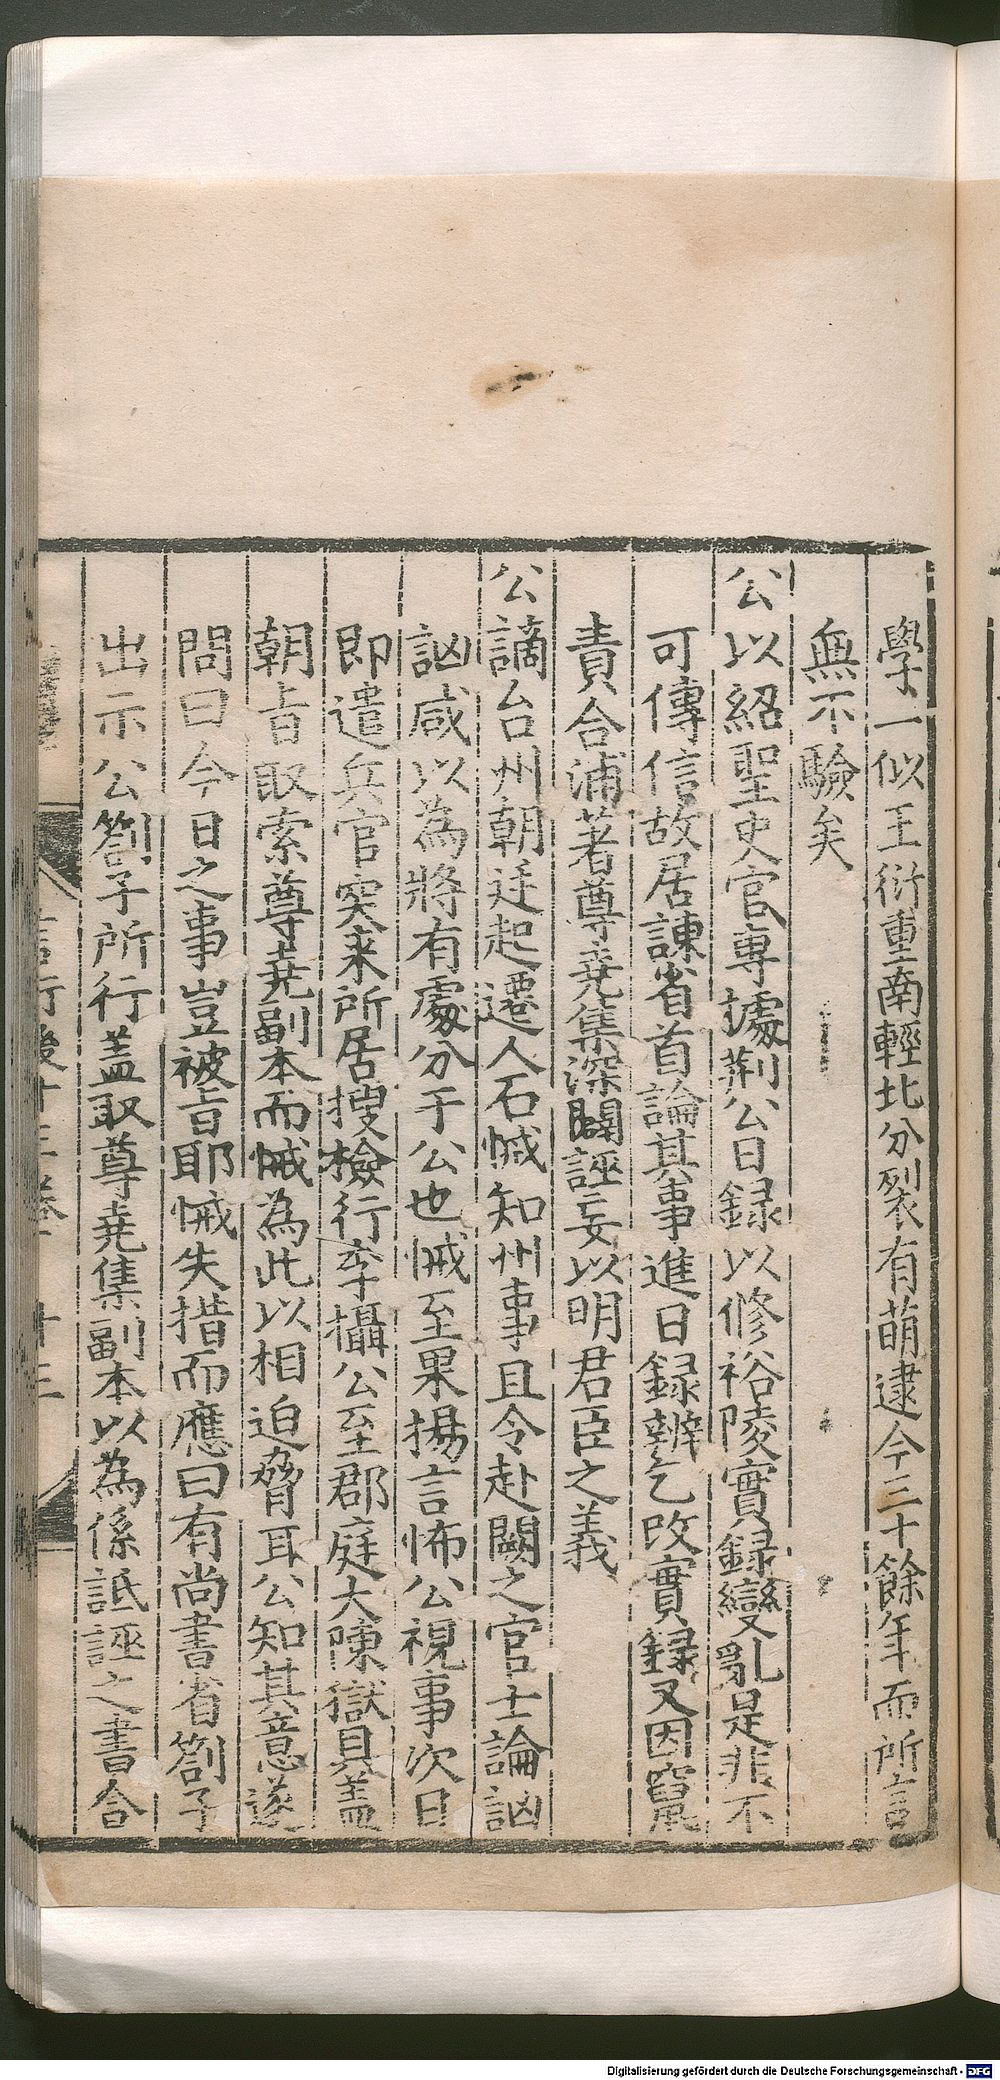 學一似王衍重南輕北分裂有萌逮今三十餘年而所言
無不驗矣
公以紹聖史官專據荆公日録以修裕陵實録變亂是非不
可傳信故居諫省首論其事進日録辨乞改實録又因竄
責合浦著尊堯集深闢誣妄以明君臣之義
公謫台州朝廷起遷人石悈知州事且令赴闕之官士論訩
訩咸以為將有處分于公也悈至果揚言怖公視事次日
即遣兵官突来所居搜檢行李攝公至郡庭大陳獄具盖
朝旨取索尊堯副本而悈為此以相迫脅耳公知其意遂
問曰今日之事豈被旨耶悈失措而應曰有尚書省劄子
出示公劄子所行盖取尊堯集副本以為係詆誣之書合
言行後十三卷 十三
Digitalisierung gefördert durch die Deutsche Forschungsgemeinschaft - DFG